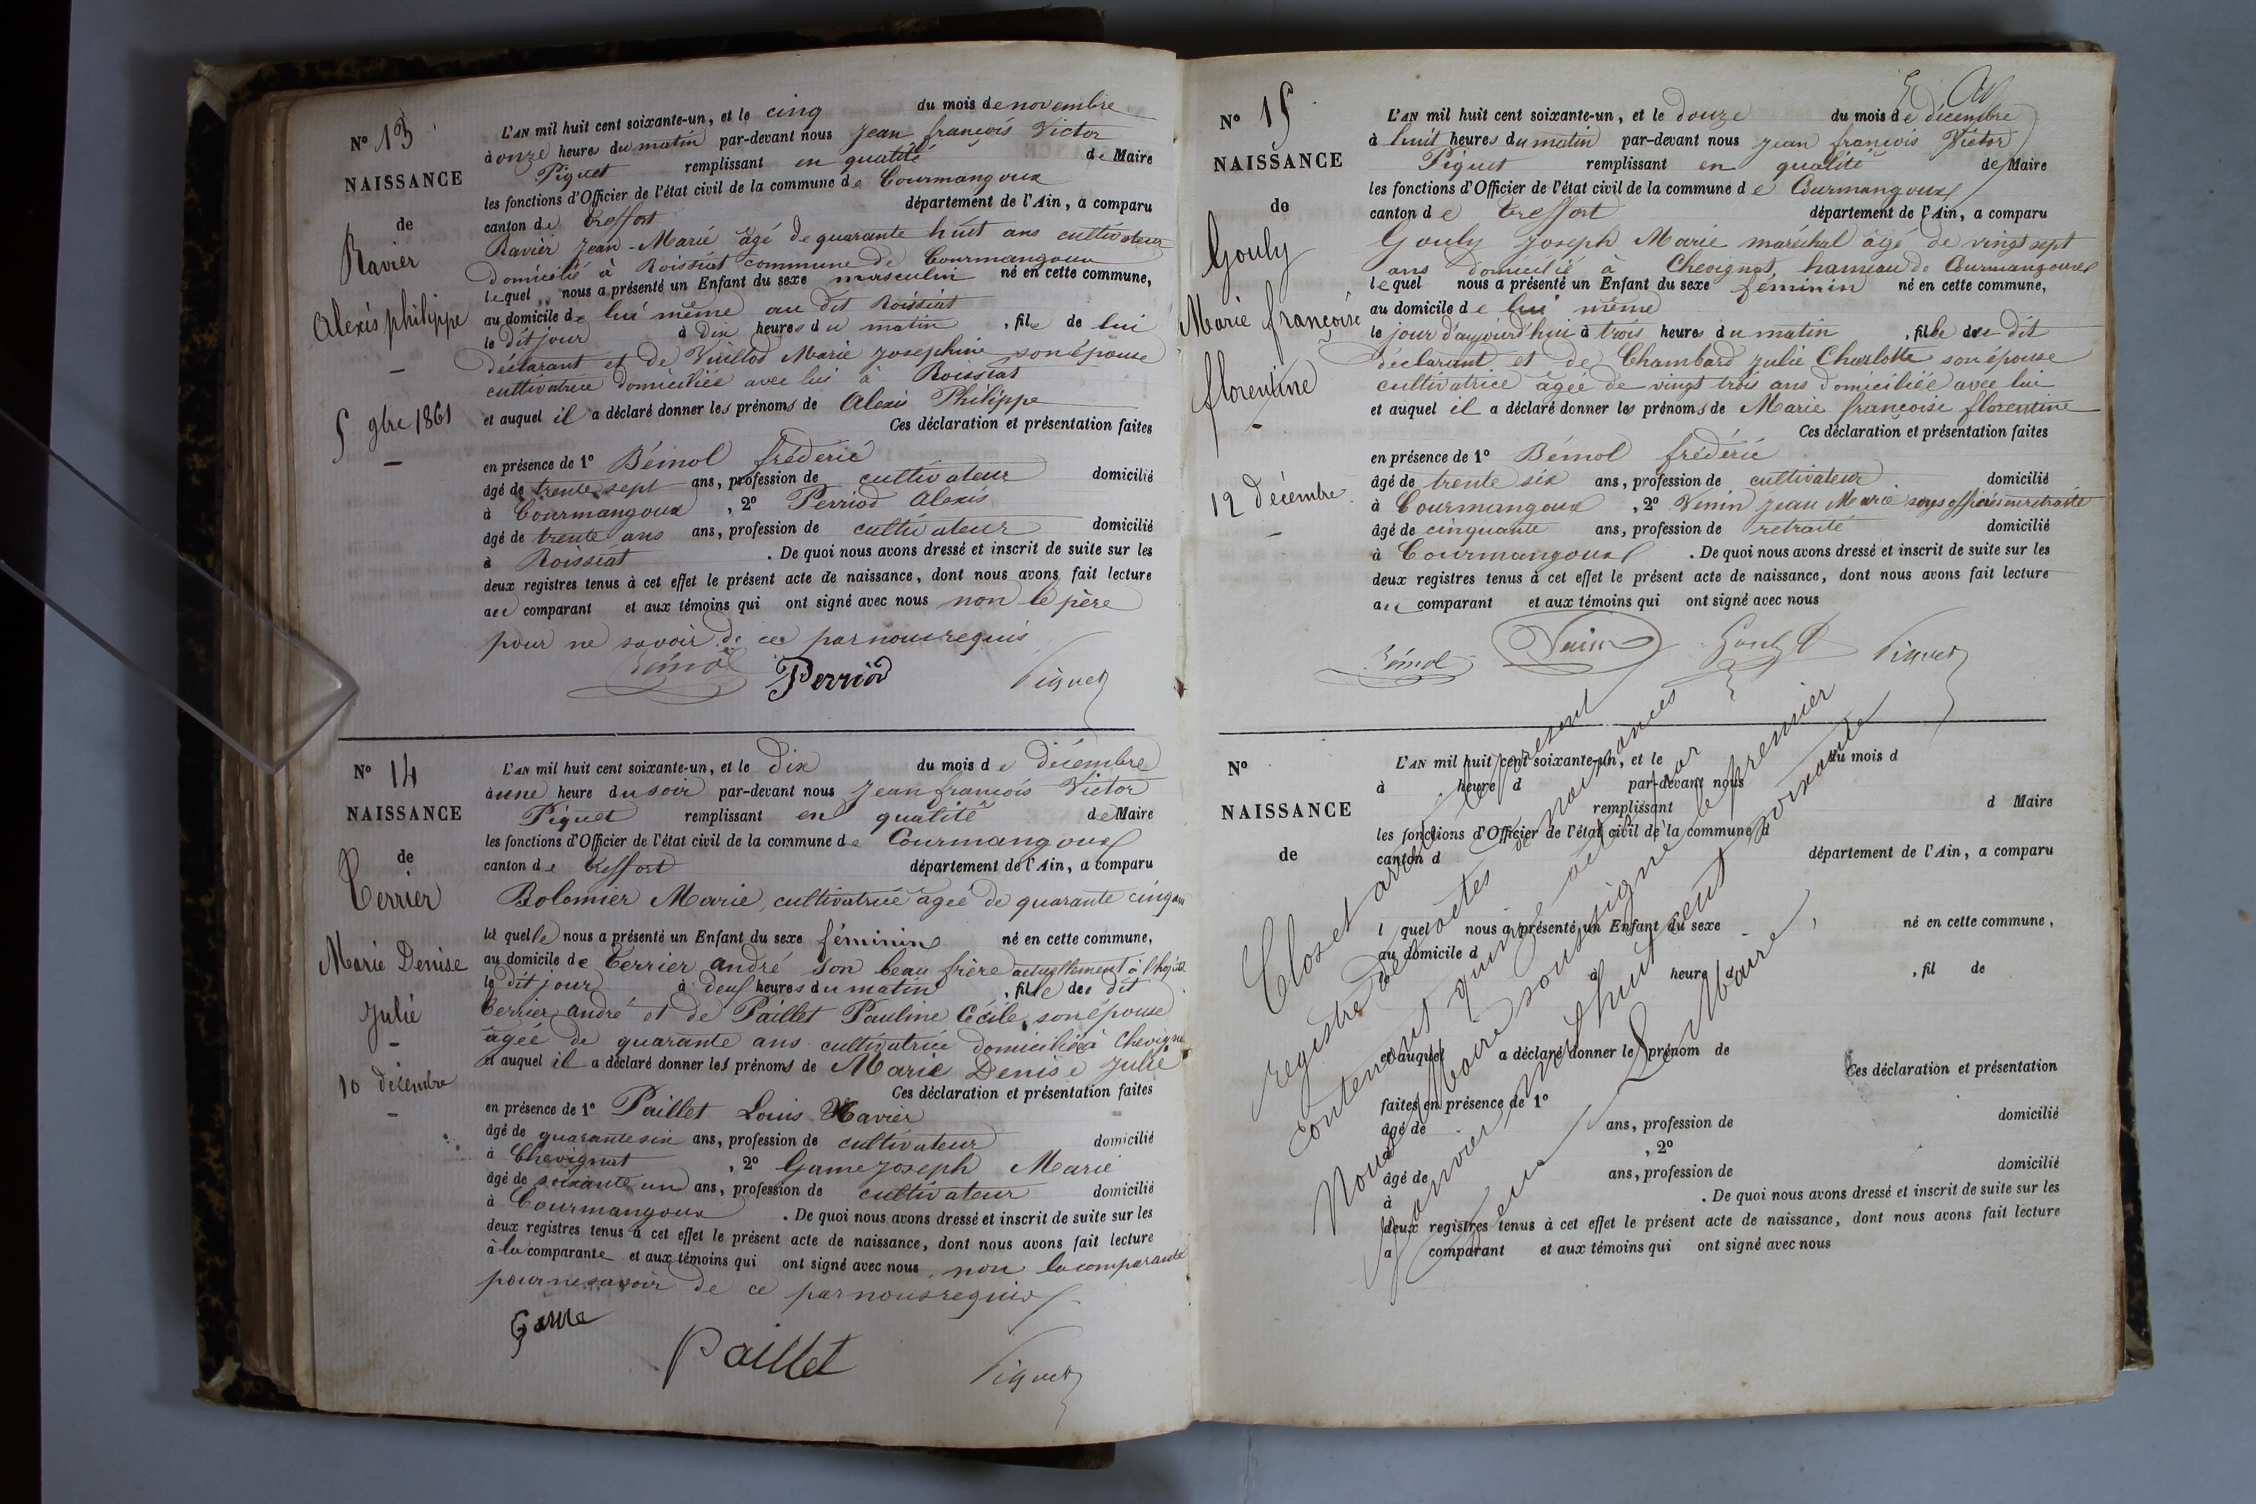 N° 13
NAISSANCE
de
Ravier
Alexis philippe
5 9bre 1861
L'AN mil huit cent soixante-un, et le cinq du mois de novembre
à onze heures du matin par-devant nous Jean françois Victor
Piquet remplissant en qualité de Maire
les fonctions d'Officier de l'état civil de la commune de Courmangoux
canton de Treffort département de l'Ain, a comparu
Ravier Jean-Marie âgé de quarante huit ans cultivateur
domicilié à Roissiat commune de Courmangoux
lequel nous a présenté un Enfant du sexe masculin né en cette commune,
au domicile de lui même au dit Roissiat
le dit jour à dix heures du matin, fils de lui
déclarant et de Vuillod Marie Josephine son épouse
cultivatrice domiciliée avec lui à Roissiat
et auquel il a déclaré donner les prénoms de Alexis Philippe
Ces déclaration et présentation faites
en présence de 1° Bémol fréderic
âgé de trente sept ans, profession de cultivateur domicilié
à Courmangoux, 2° Perriod Alexis
âgé de trente ans ans, profession de cultivateur domicilié
à Roissiat. De quoi nous avons dressé et inscrit de suite sur les
deux registres tenus à cet effet le présent acte de naissance, dont nous avons fait lecture
au comparant et aux témoins qui ont signé avec nous non le père
pour ne savoir de ce par nous requis
Bémol Perriod Piquet
N° 14
NAISSANCE
de
Terrier
Marie Denise
Julie
10 décembre
L'AN mil huit cent soixante-un, et le dix du mois de décembre
à une heure du soir par-devant nous Jean françois Victor
Piquet remplissant en qualité de Maire
les fonctions d'Officier de l'état civil de la commune de Courmangoux
canton de Treffort département de l'Ain, a comparu
Bolomier Marie, cultivatrice âgée de quarante cinq ans
laquelle nous a présenté un Enfant du sexe féminin né en cette commune,
au domicile de Terrier andré son beau frère actuellement à
le dit jour à deux heures du matin, fille du dit
Terrier andré et de Paillet Pauline Cécile, son épouse
âgée de quarante ans cultivatrice domiciliée à Chevignat
et auquel il a déclaré donner les prénoms de Marie Denise Julie
Ces déclaration et présentation faites
en présence de 1° Paillet Louis Xavier
âgé de quarante six ans, profession de cultivateur domicilié
à Chevignat, 2° Game Joseph Marie
âgé de soixante un ans, profession de cultivateur domicilié
à Courmangoux. De quoi nous avons dressé et inscrit de suite sur les
deux registres tenus à cet effet le présent acte de naissance, dont nous avons fait lecture
à la comparante et aux témoins qui ont signé avec nous, non la comparante
pour ne savoir de ce par nous requis
Game Paillet Piquet
N° 15
NAISSANCE
de
Gouly
Marie françoise
florentine
12 décembre
L'AN mil huit cent soixante-un, et le douze du mois de décembre
à huit heures du matin par-devant nous Jean françois Victor
Piquet remplissant en qualité de Maire
les fonctions d'Officier de l'état civil de la commune de Courmangoux
canton de Treffort département de l'Ain, a comparu
Gouly Joseph Marie maréchal âgé de vingt sept
ans domicilié à Chevignat, hameau de Courmangoux
lequel nous a présenté un Enfant du sexe féminin né en cette commune,
au domicile de lui même
le jour d'aujourd'hui à trois heures du matin, fille du dit
déclarant et de Chambard Julie Charlotte son épouse
cultivatrice âgée de vingt trois ans domiciliée avec lui
et auquel il a déclaré donner les prénoms de Marie françoise florentine
Ces déclaration et présentation faites
en présence de 1° Bémol frédéric
âgé de trente six ans, profession de cultivateur domicilié
à Courmangoux, 2° Venin Jean Marie sous officier en retraite
âgé de cinquante ans, profession de retraité domicilié
à Courmangoux. De quoi nous avons dressé et inscrit de suite sur les
deux registres tenus à cet effet le présent acte de naissance, dont nous avons fait lecture
au comparant et aux témoins qui ont signé avec nous
Bémol Venin Gouly Piquet
N°
NAISSANCE
de
L'AN mil huit cent soixante-un, et le du mois d
à heure d par-devant nous
remplissant d Maire
les fonctions d'Officier de l'état civil de la commune d
canton d département de l'Ain, a comparu
l quel nous a présenté un Enfant du sexe né en cette commune,
au domicile d
le à heure d, fil de
et auquel a déclaré donner le prénom de
Ces déclaration et présentation
faites en présence de 1°
âgé de ans, profession de domicilié
à, 2°
âgé de ans, profession de domicilié
à. De quoi nous avons dressé et inscrit de suite sur les
deux registres tenus à cet effet le présent acte de naissance, dont nous avons fait lecture
a comparant et aux témoins qui ont signé avec nous
Clos et arrêté le présent
registre des actes de naissances
contenant quinze actes par
Nous Maire soussigné le premier
Janvier mil huit cent soixante
deux Le Maire